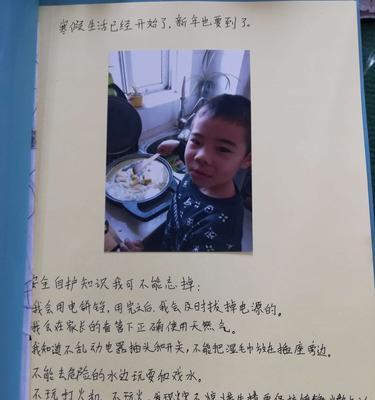 寒假生活已经开始了，新年也要到了。
安全自护知识我可不能忘掉：
我会用电饼铛，用完之后，我会及时拔掉电源的。
我会在家长的看管下正确使用天然气。
我知道不乱动电器插头和开关，不能把湿毛巾放在插座旁边。
不能去危险的水边玩耍和戏水。
不玩打火机，不玩火，发现